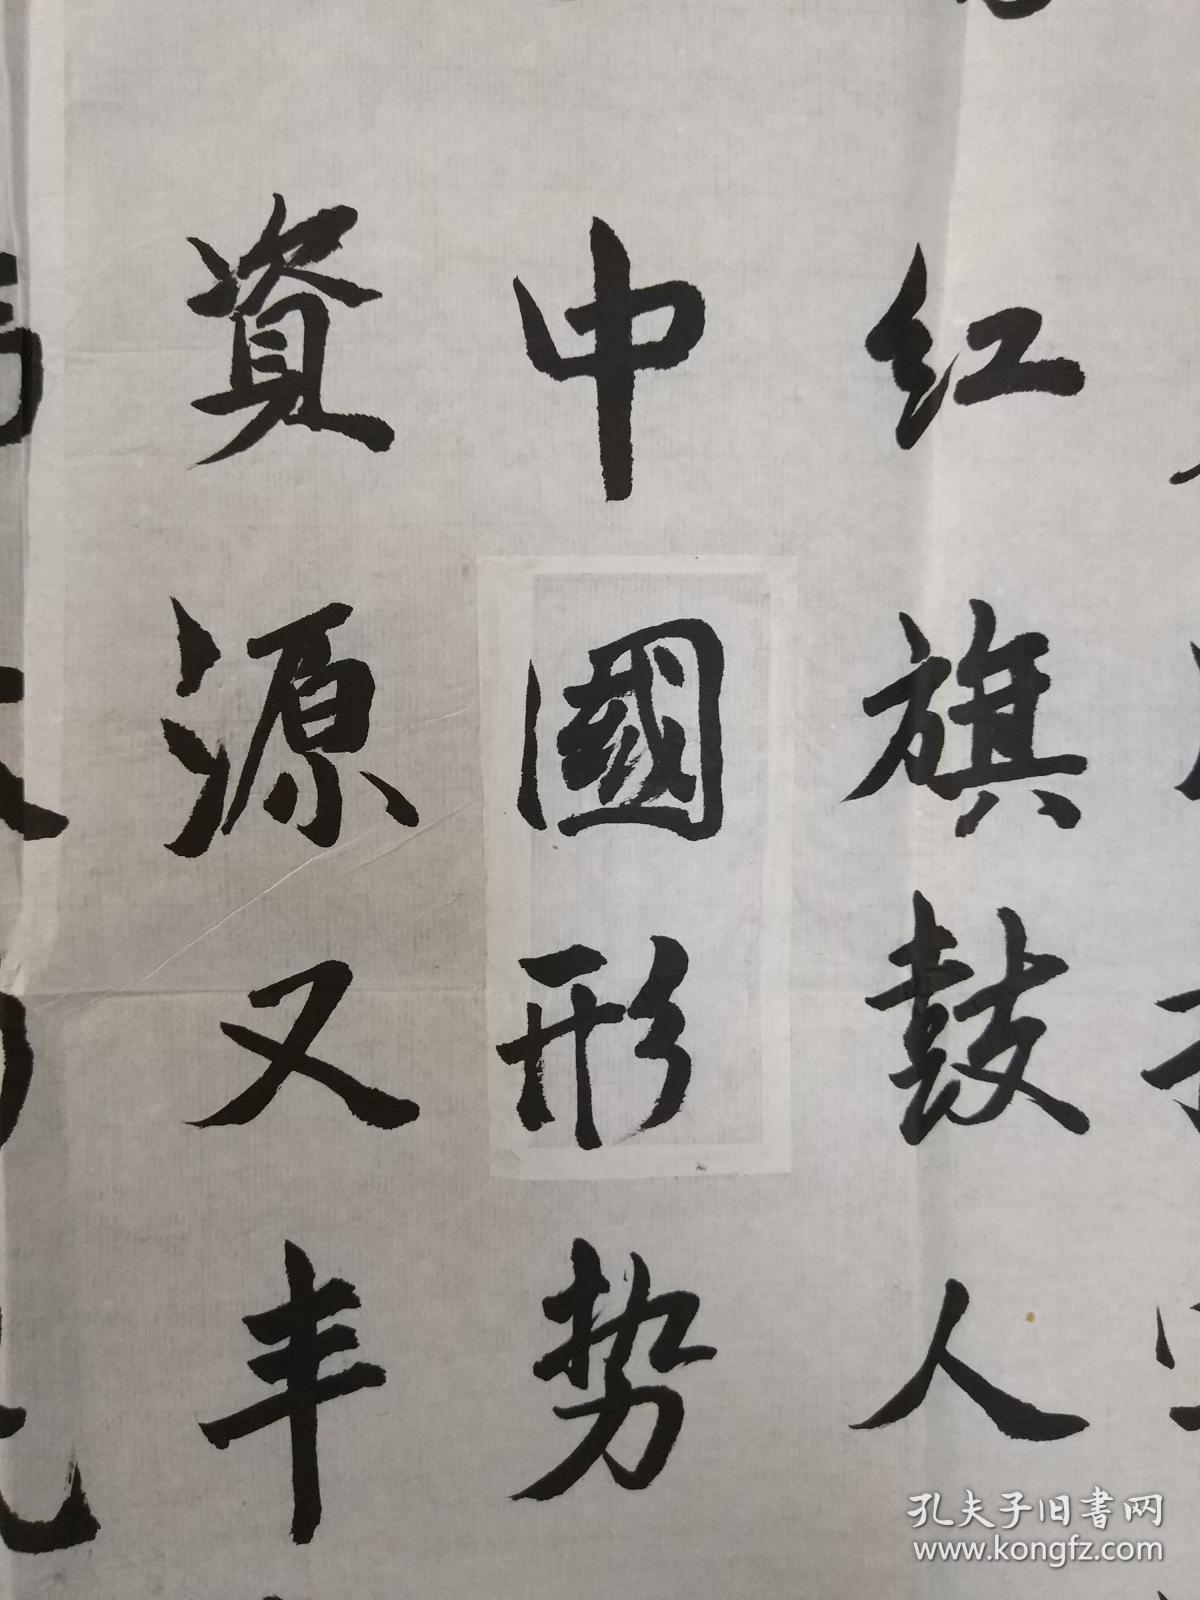 红旗鼓人
中國形势
資源又丰
孔夫子旧書网
www.kongfz.com